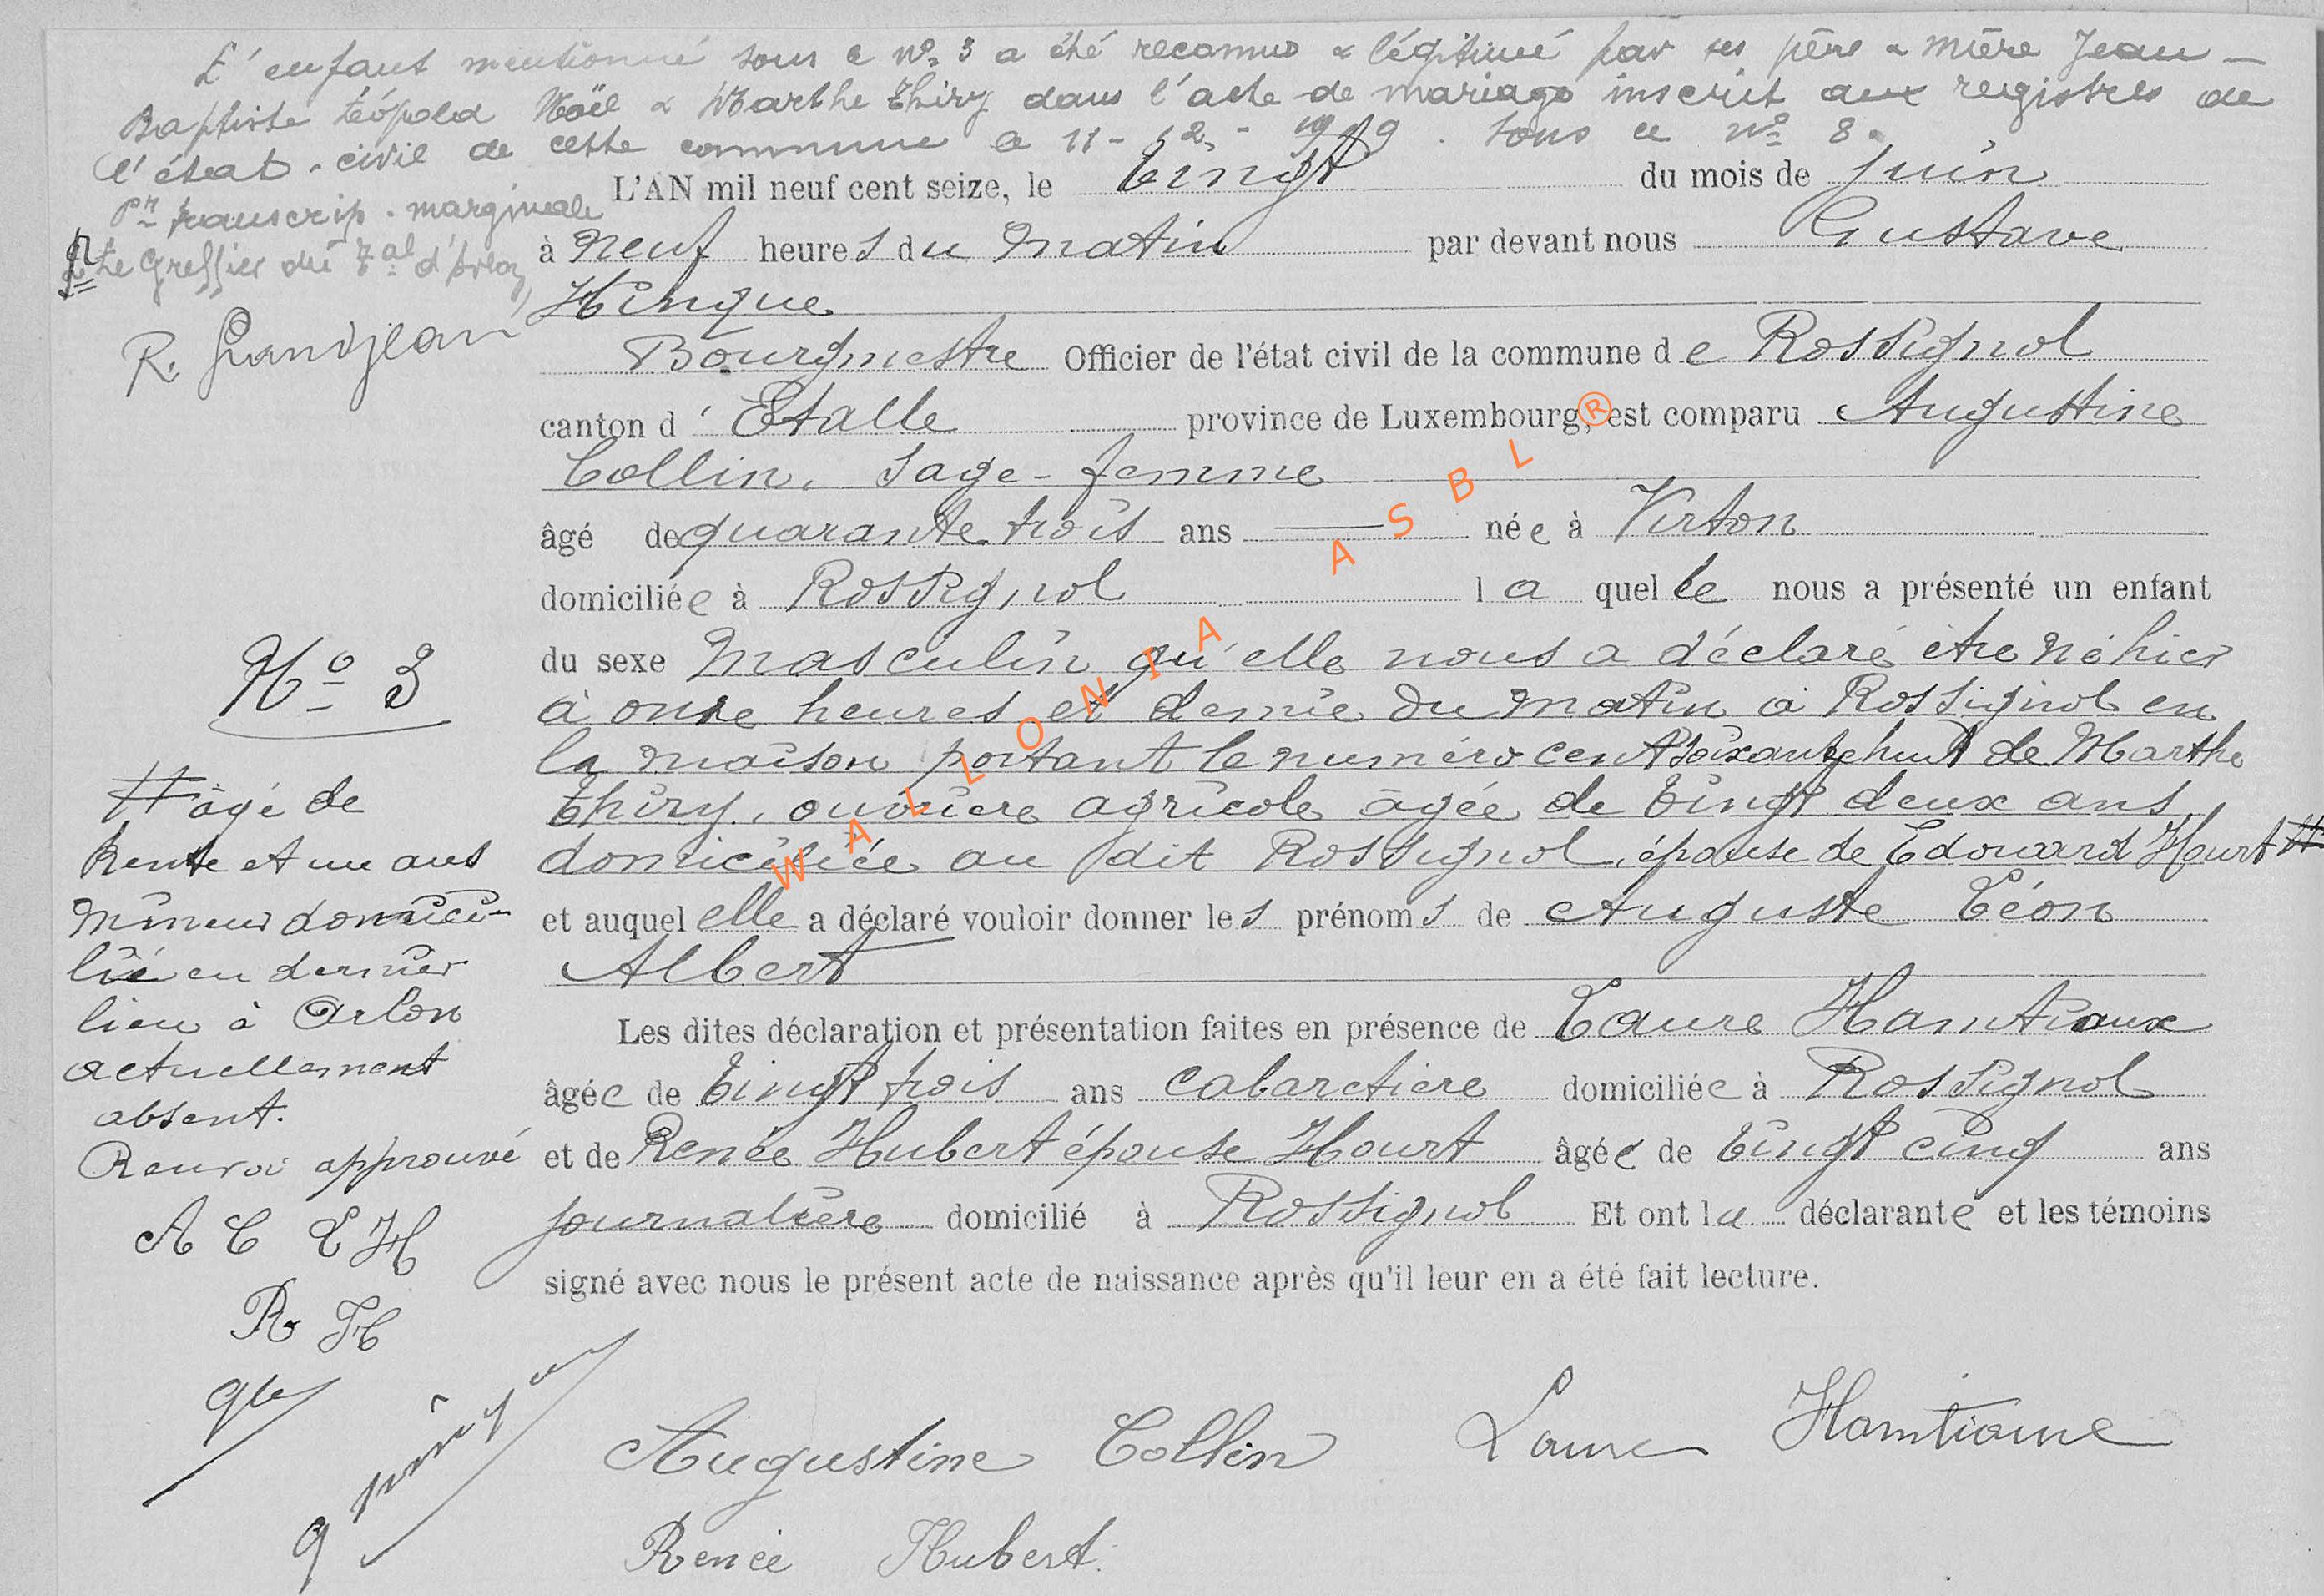 L'enfant mentionné sous ce N° 3 a été reconnu & légitimé par ses père & mère Jean-
Baptiste Léopold Noël & Marthe Thiry dans l'acte de mariage inscrit aux registres de
l'état-civil de cette commune le 11-12-1919. sous le N° 8.
Pr transcrip. marginale
Le Greffier du Tal d'Arlon,
R. Grandjean
L'AN mil neuf cent seize, le vingt du mois de juin
à neuf heures du matin par devant nous Gustave
Hinque
Bourgmestre Officier de l'état civil de la commune de Rossignol
canton d'Etalle province de Luxembourg, est comparu Augustine
Collin, sage-femme
âgé de quarante trois ans née à Virton
domiciliée à Rossignol laquelle nous a présenté un enfant
N° 3
du sexe masculin qu'elle nous a déclaré être né hier
à onze heures et demie du matin à Rossignol en
la maison portant le numéro cent soixante huit de Marthe
Thiry, ouvrière agricole âgée de vingt deux ans,
domiciliée au dit Rossignol, épouse de Edouard Hourt #
# âgé de
trente et un ans
mineur domici-
lié en dernier
lieu à Arlon
actuellement
absent.
Renvoi approuvé
A C L H
R H
et auquel elle a déclaré vouloir donner les prénoms de Auguste Léon
Albert
Les dites déclaration et présentation faites en présence de Laure Hamtiaux
âgée de vingt trois ans cabaretière domiciliée à Rossignol
et de Renée Hubert épouse Hourt âgée de vingt cinq ans
journalière domicilié à Rossignol Et ont la déclarante et les témoins
signé avec nous le présent acte de naissance après qu'il leur en a été fait lecture.
Augustine Collin Laure Hamtiaux
Renée Hubert.
WALLONIA ASBL®